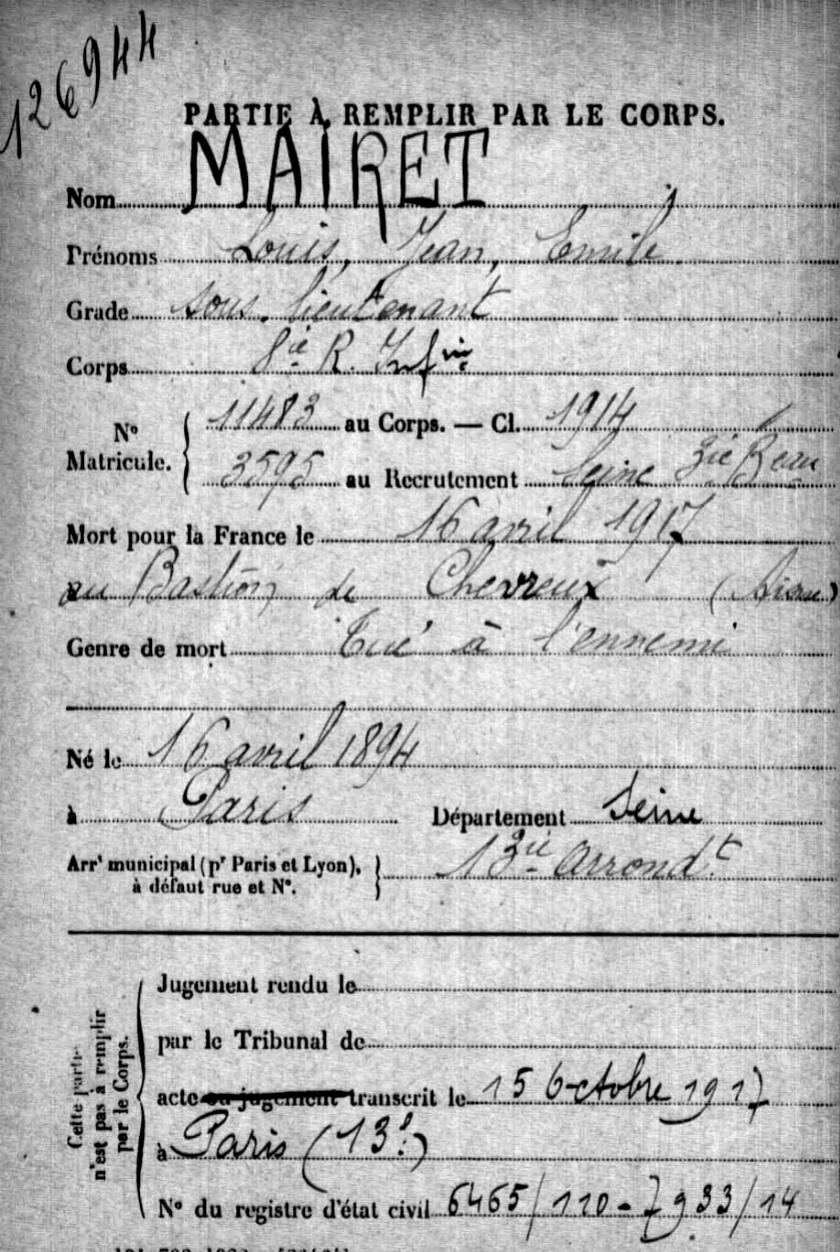 126944
PARTIE À REMPLIR PAR LE CORPS.
Nom MAIRET
Prénoms Louis, Jean, Emile.
Grade sous-lieutenant
Corps 8ie R. Infrie
No Matricule. { 11483 au Corps. — Cl. 1914
3595 au Recrutement Seine 3ie Beau
Mort pour la France le 16 avril 1917
au Bastion de Chevreux (Aisne)
Genre de mort Tué à l'ennemi
Né le 16 avril 1894
à Paris Département Seine
Arrt municipal (pr Paris et Lyon), à défaut rue et No. } 13ie Arrondt
Cette partie n'est pas à remplir par le Corps.
Jugement rendu le
par le Tribunal de
acte ou jugement transcrit le 15 Octobre 1917
à Paris (13e)
No du registre d'état civil 6465/110 - 7933/14